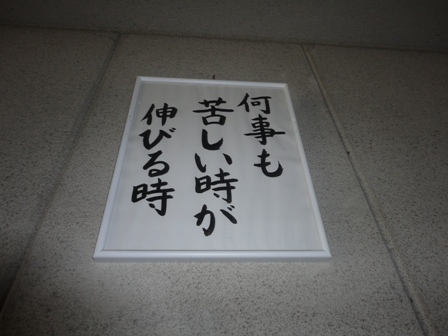 何事も
苦しい時が
伸びる時